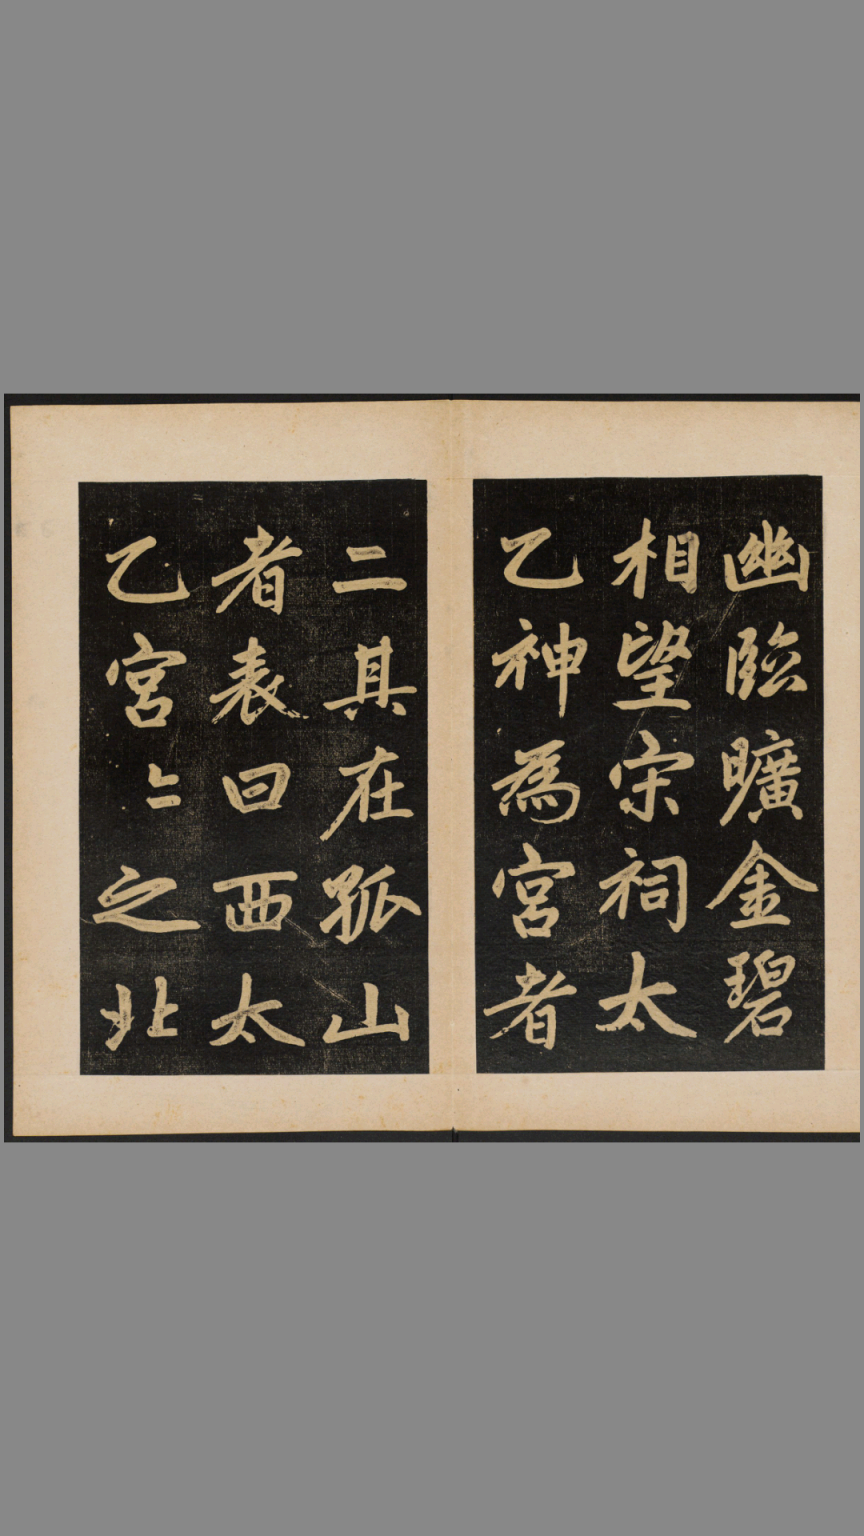 幽臨曠金碧
相望宋祠太
乙神為宮者
二其在孤山
者表曰西太
乙宮〻之北